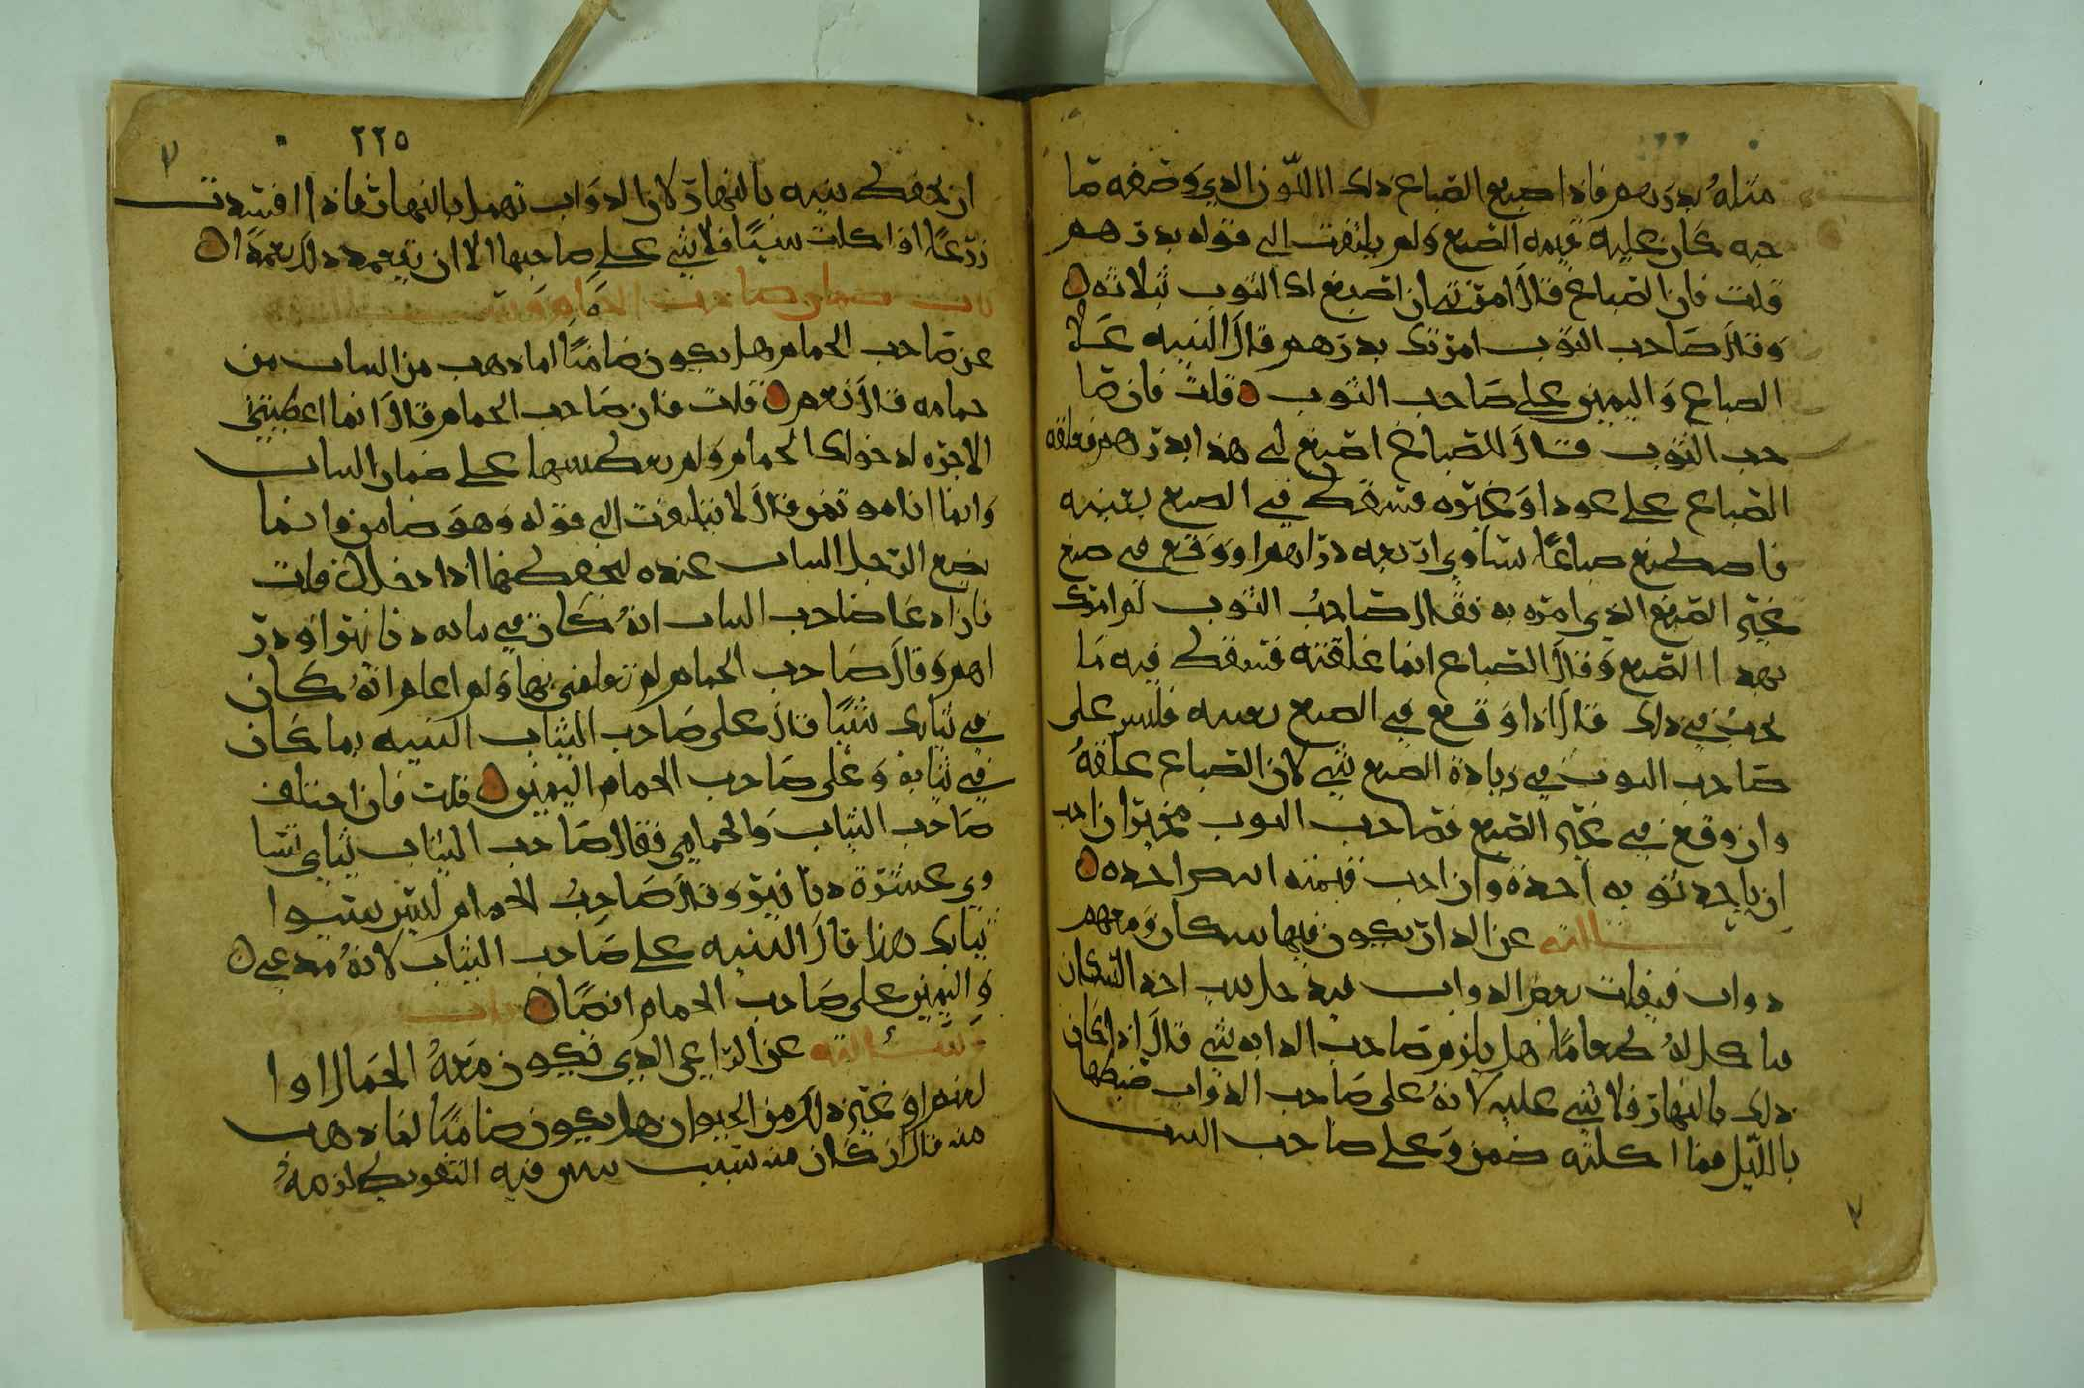 مثله بدرهم فاذا صبع الصباع ذلك اللون الدي وصفه صا
حبه كان عليه قيمه الصبع ولم يلتفت الى قوله بدرهم
قلت فان الصباغ قال امرتني ان اصبغ لك الثوب بثلاثه
وقال صاحب الثوب امرتك بدرهم قال البنيه على
الصباع واليمين على صاحب الثوب قلت فان صا
حب الثوب قال للصباغ اصبغ لي هذا بدرهم فعلقه
الصباع على عود او غيره فسقط في الصبع بعينه
فاصطبغ صباغا يساوي اربعه دراهم او وقع في صبغ
غير الصبغ الذي امره به فقال صاحب الثوب لم امرك
بهدا الصبع وقال الصباع انما علقته فسقط فيه ما
يجب في ذلك قال اذا وقع في الصبع بعينه فليس على
صاحب الثوب في زيادة الصبع شي لان الصباع علقه
وان وقع في غير الصبع فصاحب الثوب مخير ان احب
ان ياخد ثوبه اخده وان احب قيمته ابيض اخده
سالته عن الدار يكون فيها سكان ومعهم
دواب فيفلت بعض الدواب فيدخل بيت احد السكان
فياكل له طعاما هل يلزم صاحب الدابه شي قال اذا كان
ذلك بالنهار فلا شي عليه لانه على صاحب الدواب ضبطها
بالليل فما اكلته ضمن وعلى صاحب البيت
٢٢٥
ان يحفظ بيته بالنهار لان الدواب تهمل بالنهار فاذا افسدت
زرعا او اكلت شيا فلا شي على صاحبها الا ان يتعمد ذلك تعمدا
باب ضمان صاحب الحمام
عن صاحب الحمام هل يكون ضامنا لما دهب من الثياب من
حمامه قال نعم قلت فان صاحب الحمام قال انما اعطيتني
الاجره لدخولك الحمام ولم تعطيها على ضمان الثياب
وانما انا موتمن قال لا يلتفت الى قوله وهو ضامن وانما
يضع الرجل الثياب عنده ليحفظها اذا دخل قلت
فان ادعا صاحب الثياب انه كان في ثيابه دنانير او در
اهم وقال صاحب الحمام لم تعلمني بها ولم اعلم انه كان
في ثيابك شيا قال على صاحب الثياب البنيه بما كان
في ثيابه وعلى صاحب الحمام اليمين قلت فان اختلف
صاحب الثياب والحمامي فقال صاحب الثياب ثيابي تسا
وي عشرة دنانير وقال صاحب الحمام ليس يسوا
ثيابك هذا قال البنيه على صاحب الثياب لانه مدعي
واليمين على صاحب الحمام ايضا باب
وسالته عن الراعي الذي تكون معه الجمال او ا
لغنم او غير ذلك من الحيوان هل يكون ضامنا لما دهب
منه قال ان كان من سبب بين فيه التفريط لزمه